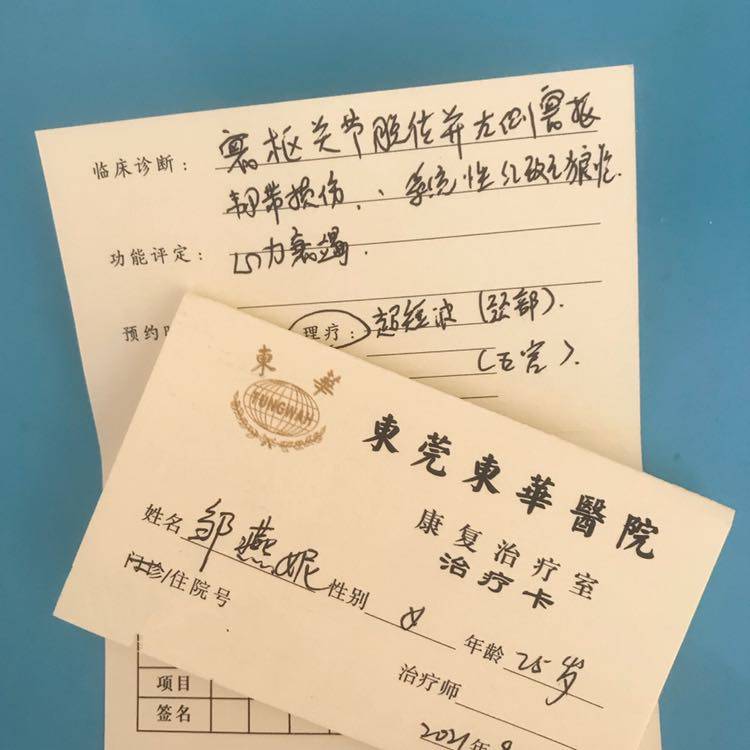 临床诊断：寰枢关节脱位并左侧寰枢
韧带损伤、系统性红斑狼疮
功能评定：心力衰竭.
预约
理疗：超短波（颈部）.
（五官）.
東華
TUNGWAH
東莞東華醫院
康复治疗室
治疗卡
姓名 邹燕妮 性别 女 年龄 25岁
门诊/住院号
治疗师
2021年9
项目
签名